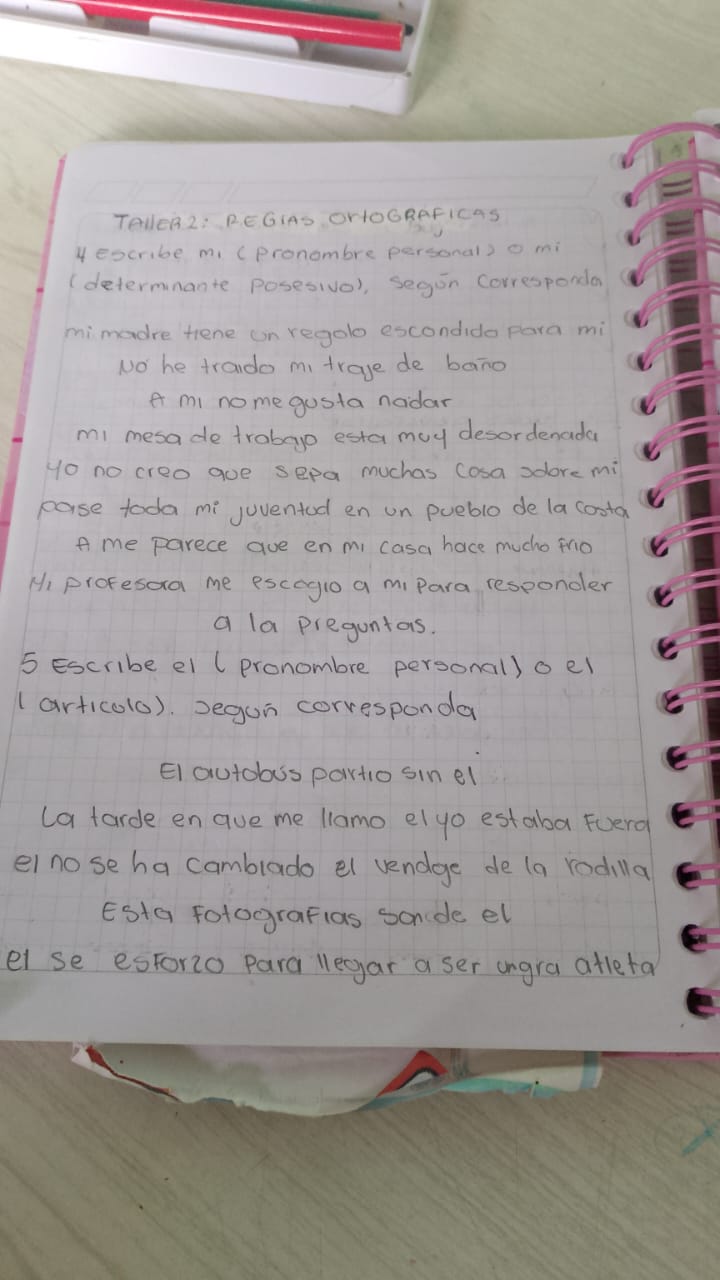 TALLER 2: REGlAS ORtOGRAFICAS
4 Escribe mi (pronombre personal) o mi
(determinante posesivo), según corresponda
mi madre tiene un regalo escondido para mi
No he traido mi traje de baño
A mi no me gusta nadar
mi mesa de trabajo esta muy desordenada
yo no creo que sepa muchas cosa sobre mi
pase toda mi juventud en un pueblo de la costa
A me parece que en mi casa hace mucho frio
Mi profesora me escogio a mi para responder
a la preguntas.
5 Escribe el (pronombre personal) o el
(articolo). segun corresponda
El autobús partio sin el
La tarde en que me llamo el yo estaba fuera
el no se ha cambiado el vendge de la rodilla
Esta fotografias son de el
el se esforzo para llegar a ser ungra atleta